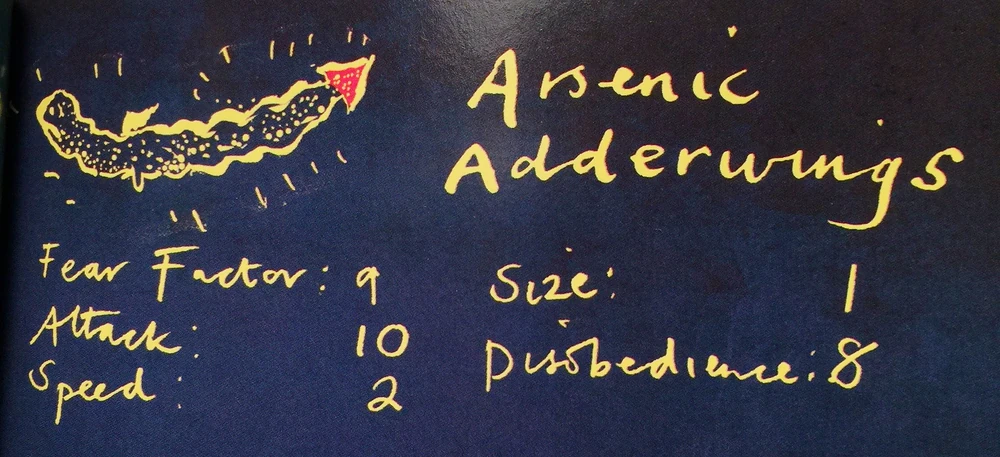 Arsenic
Adderwings
Fear Factor: 9
Attack: 10
Speed: 2
Size: 1
Disobedience: 8